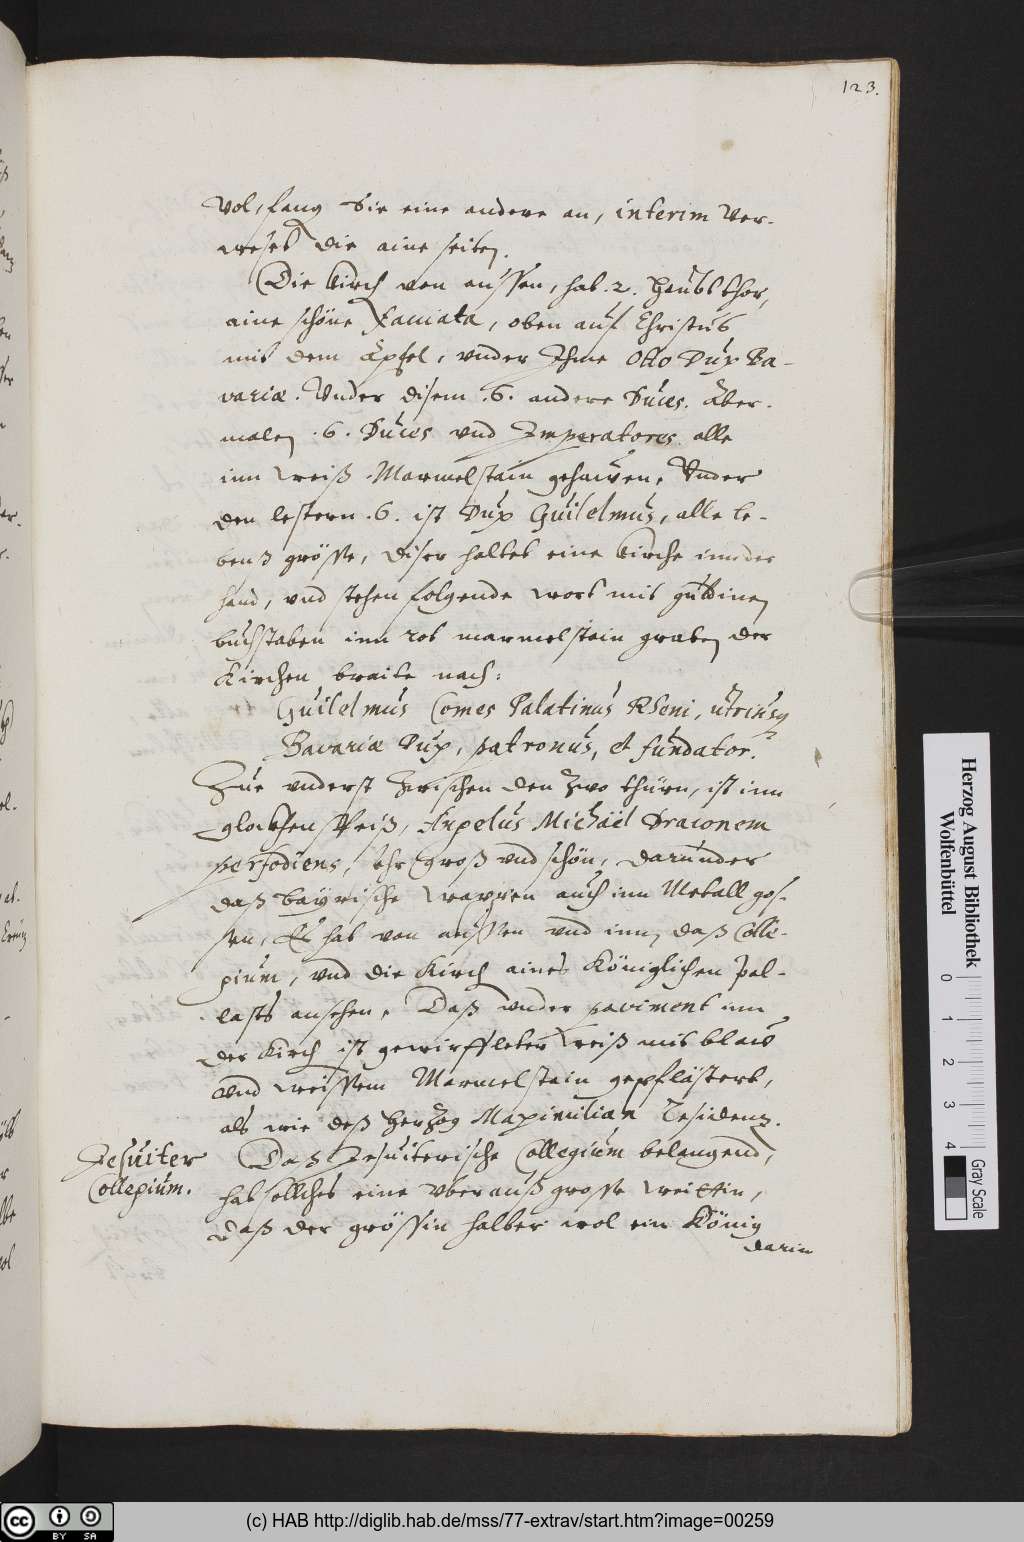 123.
vol, fang Sie eine andere an, interim ver-
weset die aine seiten.
Die Kirch von aussen, hat .2. Haubtthor,
aine schöne Faciata, oben auf Christus
mit dem Apfel, vnder Ihme Otto Dux Ba-
variæ. Vnder disem .6. andere Duces. Aber-
malen .6. Duces vnd Imperatores alle
inn weiß Marmelstain gehawen, Vnder
den lestern .6. ist Dux Guilelmus, alle le-
bens grösse, diser haltet eine Kirche inn der
hand, vnd stehen folgende wort mit guldinen
buchstaben inn rot marmelstain graben der
Kirchen braite nach:
Guilelmus Comes Palatinus Rheni, utriusq
Bavariæ Dux, patronus, et fundator.
Zue vnderst zwischen den zwo thüren, ist inn
glockhen speiß, Angelus Michaël Draconem
perfodiens, sehr groß vnd schön, darunder
daß bayrische wappen auch inn Metall gos-
sen, Es hat von aussen vnd innen daß Colle-
gium, vnd die Kirch aines Königlichen Pal-
lasts ansehen, Daß vnder paviment inn
der Kirch ist gewürffleter weiß mit blaw
vnd weissem Marmelstain gepflästert,
als wie deß Herzog Maximilian Residenz.
Jesuiter
Collegium.
Das Jesuiterische Collegium belangend,
hat solches eine vberauß grosse weittin,
daß der grössin halber wol ein König
darin
Herzog August Bibliothek
Wolfenbüttel
0 1 2 3 4
Gray Scale
cc BY SA
(c) HAB http://diglib.hab.de/mss/77-extrav/start.htm?image=00259